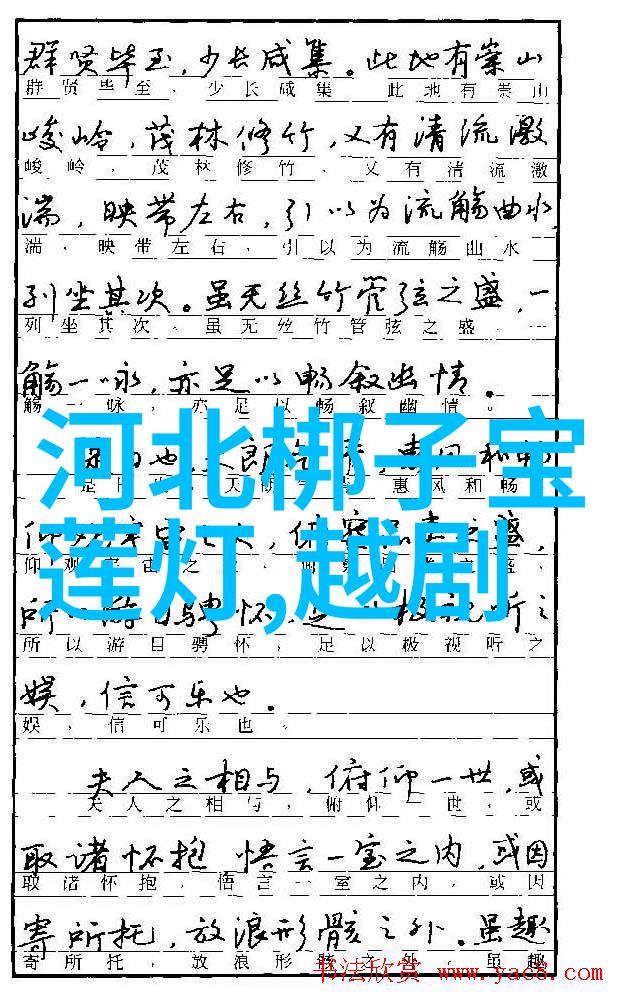 群贤毕至，少长咸集。此地有崇山
群贤毕至，少长咸集。此地有崇山
峻岭，茂林修竹，又有清流激
峻岭，茂林修竹，又有清流激
湍，映带左右，引以为流觞曲水，
湍，映带左右，引以为流觞曲水
列坐其次。虽无丝竹管弦之盛，一
列坐其次。虽无丝竹管弦之盛，一
觞一咏，亦足以畅叙幽情。
觞一咏，亦足以畅叙幽情。
河北梆子宝
莲灯,越剧
惠风和畅
所以游目骋怀，足以极视听之
娱，信可乐也。
娱，信可乐也。
夫人之相与，俯仰一世，或
夫人之相与，俯仰一世，或
取诸怀抱 悟言一室之内，或因
取诸怀抱，悟言一室之内，或因
寄所托，放浪形骸之外。虽趣
寄所托，放浪形骸之外。虽趣
书法欣赏 www.yac8.com